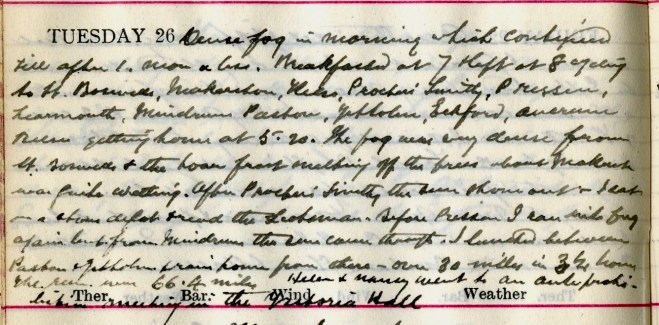 TUESDAY 26 Dense fog in morning which continued
till after 1. more or less. Breakfasted at 7 & left at 8 cycling
to St. Boswells, Makerston, Smithy, Pressen,
Learmouth, Mindrum, Pawston, Yetholm,
getting home at 5.20. The fog was very dense from
St. Boswells & the hoar frost melting off the trees about Makerston
was quite wetting. After Smithy the sun shone out & I sat
on a stone & read the Scotsman. Before Pressen I ran into fog
again but from Mindrum the sun came through. I lunched between
Pawston & Yetholm & ran home from there - over 30 miles in 3¼ hours
The run was 66.4 miles Helen & Nancy went to an anti prohi-
bition meeting in the Victoria Hall
Ther. Bar. Wind Weather